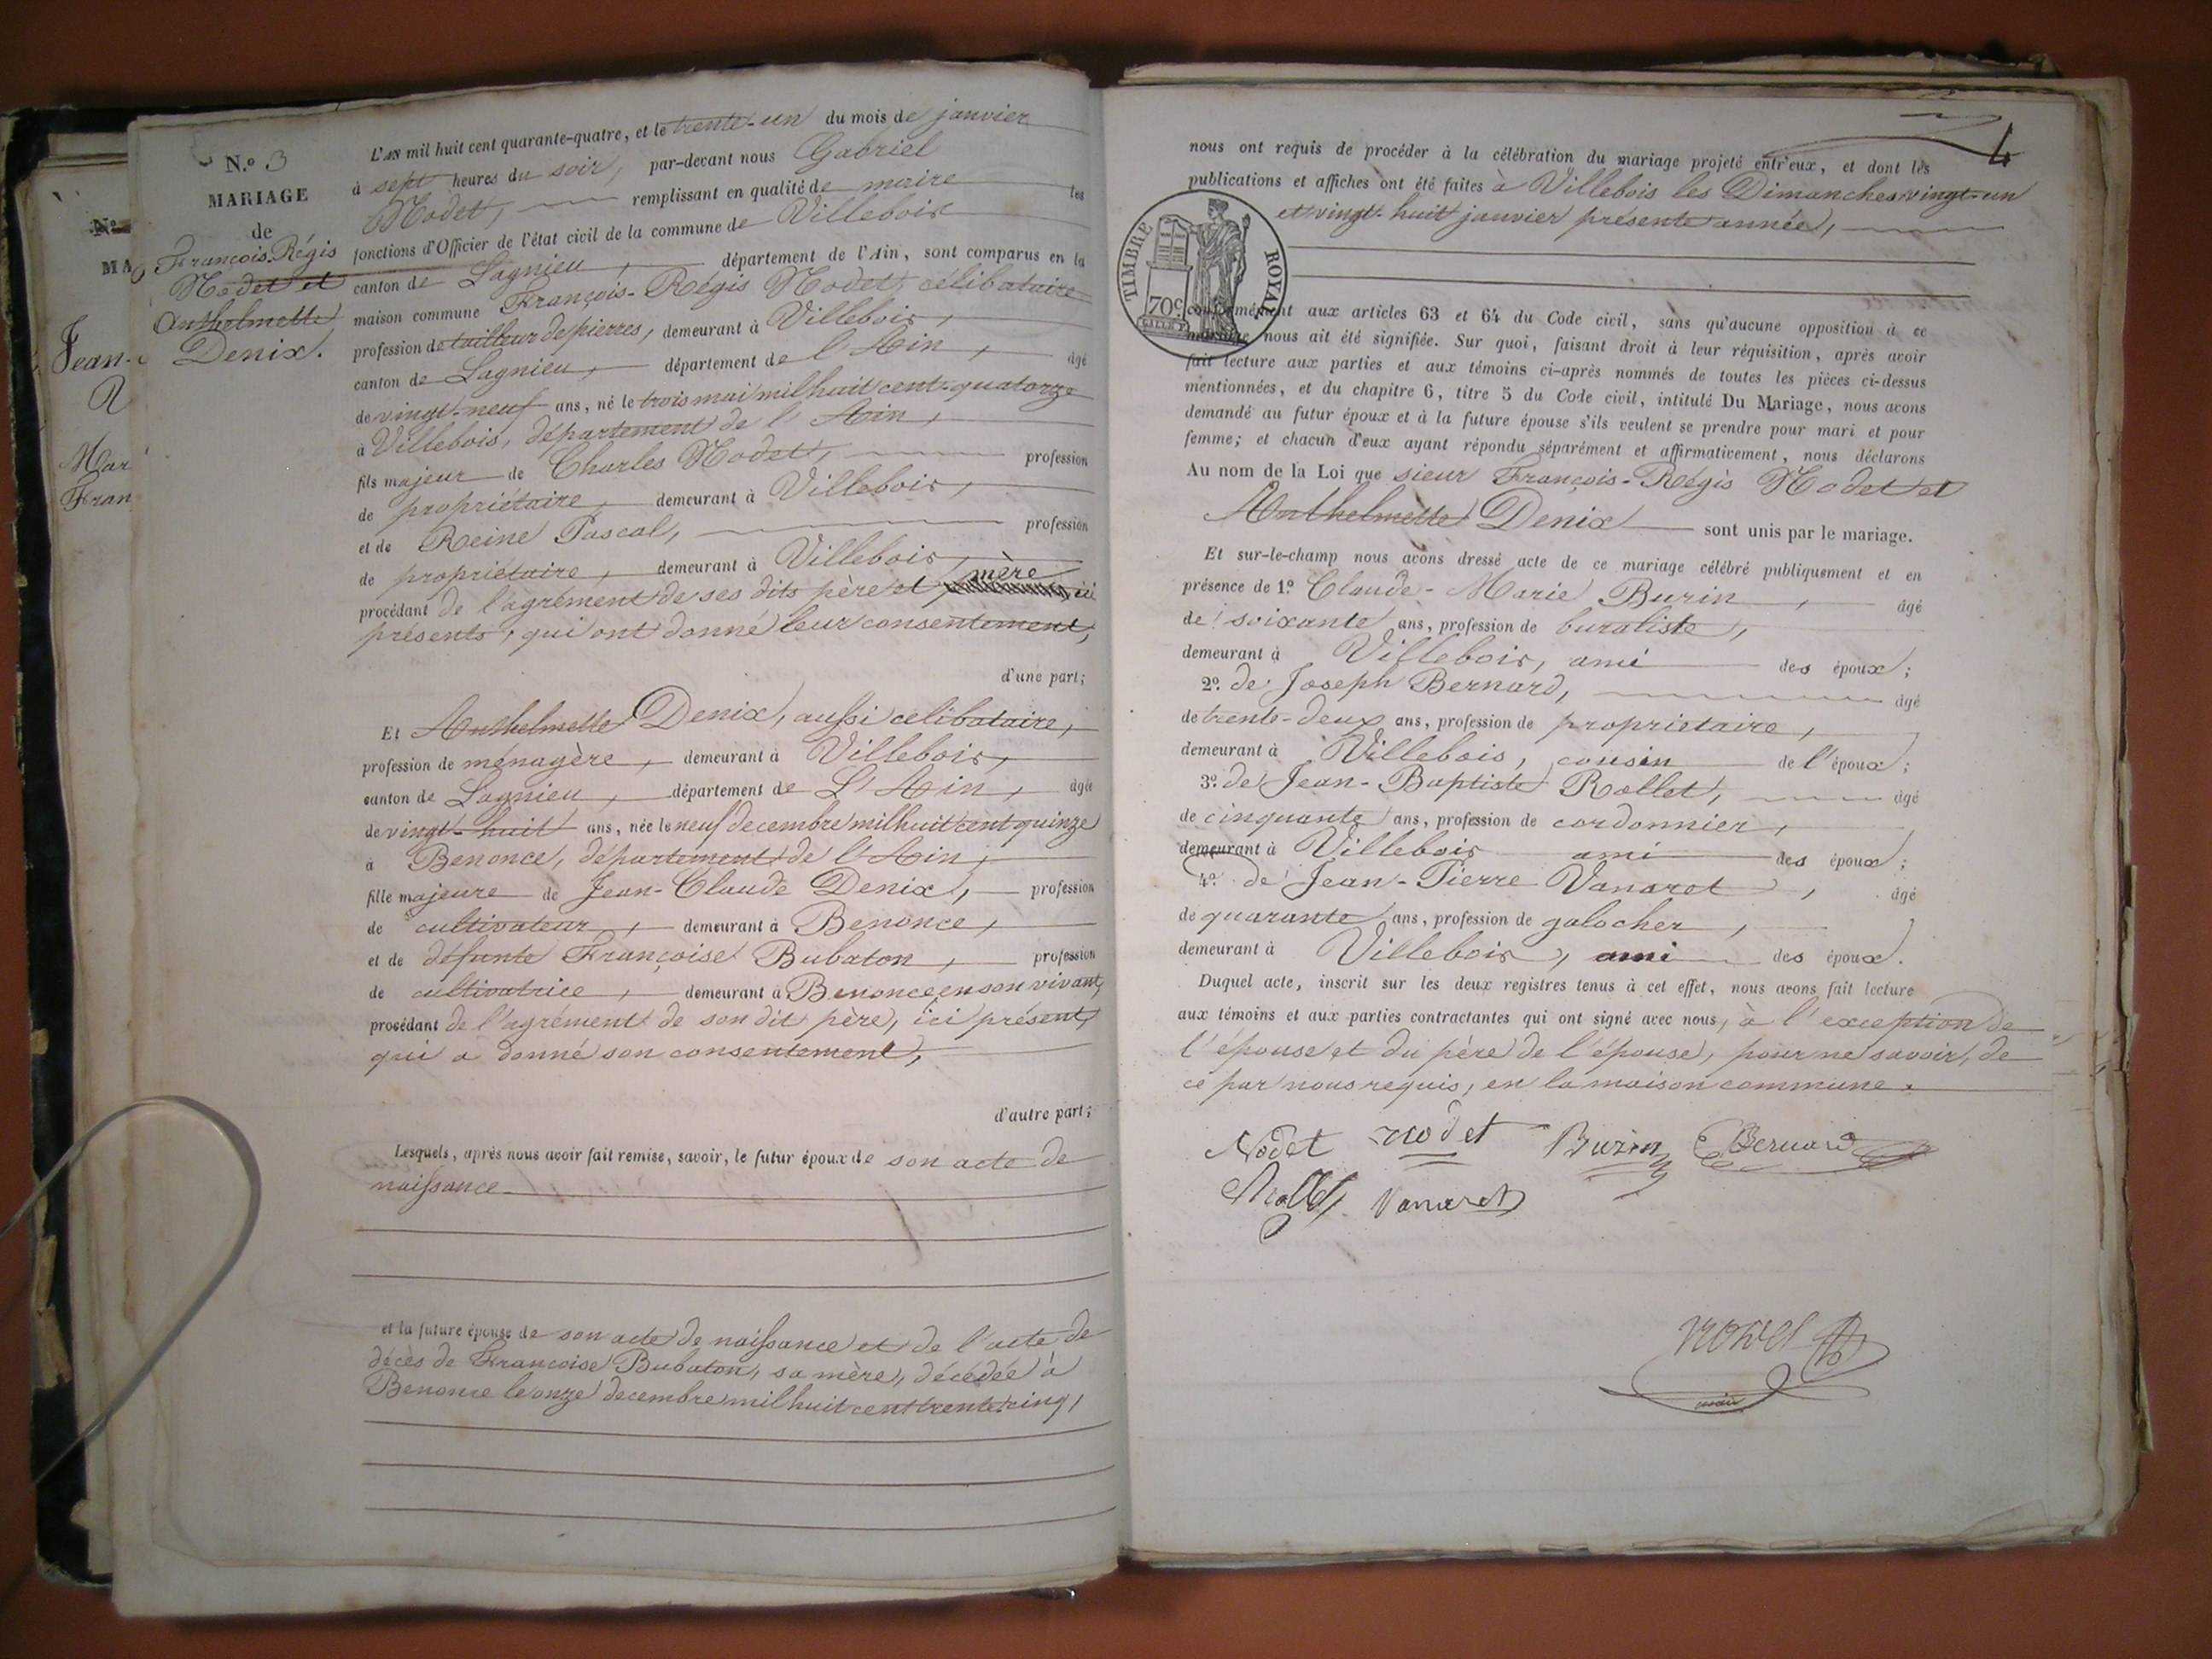 N.º 3
MARIAGE
de
François-Régis
Nodet et
Anthelmette
Denix.
L'AN mil huit cent quarante-quatre, et le trente-un du mois de janvier
à sept heures du soir, par-devant nous Gabriel
Nodet, remplissant en qualité de maire les
fonctions d'Officier de l'état civil de la commune de Villebois
canton de Lagnieu, département de l'Ain, sont comparus en la
maison commune François-Régis Nodet, célibataire
profession de tailleur de pierres, demeurant à Villebois,
canton de Lagnieu, département de l'Ain, âgé
de vingt-neuf ans, né le trois mai mil huit cent quatorze
à Villebois, département de l'Ain,
fils majeur de Charles Nodet, profession
de propriétaire, demeurant à Villebois,
et de Reine Pascal, profession
de propriétaire, demeurant à Villebois,
procédant de l'agrément de ses dits père et mère ici
présents, qui ont donné leur consentement,
d'une part;
Et Anthelmette Denix, aussi celibataire,
profession de ménagère, demeurant à Villebois,
canton de Lagnieu, département de L'Ain, âgée
de vingt-huit ans, née le neuf decembre mil huit cent quinze
à Benonce, département de l'Ain,
fille majeure de Jean-Claude Denix, profession
de cultivateur, demeurant à Benonce,
et de défunte Françoise Bubaton, profession
de cultivatrice, demeurant à Benonce en son vivant,
procédant de l'agrément de son dit père, ici présent,
qui a donné son consentement,
d'autre part;
Lesquels, après nous avoir fait remise, savoir, le futur époux de son acte de
naissance
et la future épouse de son acte de naissance et de l'acte de
décès de Françoise Bubaton, sa mère, décédée à
Benonce le onze decembre mil huit cent trente-cinq,
4
nous ont requis de procéder à la célébration du mariage projeté entr'eux, et dont les
publications et affiches ont été faites à Villebois les Dimanches vingt-un
et vingt-huit janvier présente année,
TIMBRE ROYAL
70c.
conformément aux articles 63 et 64 du Code civil, sans qu'aucune opposition à ce
mariage nous ait été signifiée. Sur quoi, faisant droit à leur réquisition, après avoir
fait lecture aux parties et aux témoins ci-après nommés de toutes les pièces ci-dessus
mentionnées, et du chapitre 6, titre 5 du Code civil, intitulé Du Mariage, nous avons
demandé au futur époux et à la future épouse s'ils veulent se prendre pour mari et pour
femme; et chacun d'eux ayant répondu séparément et affirmativement, nous déclarons
Au nom de la Loi que sieur François-Régis Nodet et
Anthelmette Denix sont unis par le mariage.
Et sur-le-champ nous avons dressé acte de ce mariage célébré publiquement et en
présence de 1.º Claude-Marie Burin, âgé
de soixante ans, profession de buraliste,
demeurant à Villebois, ami des époux;
2.º de Joseph Bernard, âgé
de trente-deux ans, profession de propriétaire,
demeurant à Villebois, cousin de l'époux;
3.º de Jean-Baptiste Rollet, âgé
de cinquante ans, profession de cordonnier,
demeurant à Villebois ami des époux;
4.º de Jean-Pierre Vanarot, âgé
de quarante ans, profession de galocher,
demeurant à Villebois, ami des époux.
Duquel acte, inscrit sur les deux registres tenus à cet effet, nous avons fait lecture
aux témoins et aux parties contractantes qui ont signé avec nous, à l'exception de
l'épouse et du père de l'épouse, pour ne savoir, de
ce par nous requis, en la maison commune.
Nodet nodet Burin Bernard
Rollet Vanaret
Nodet
maire